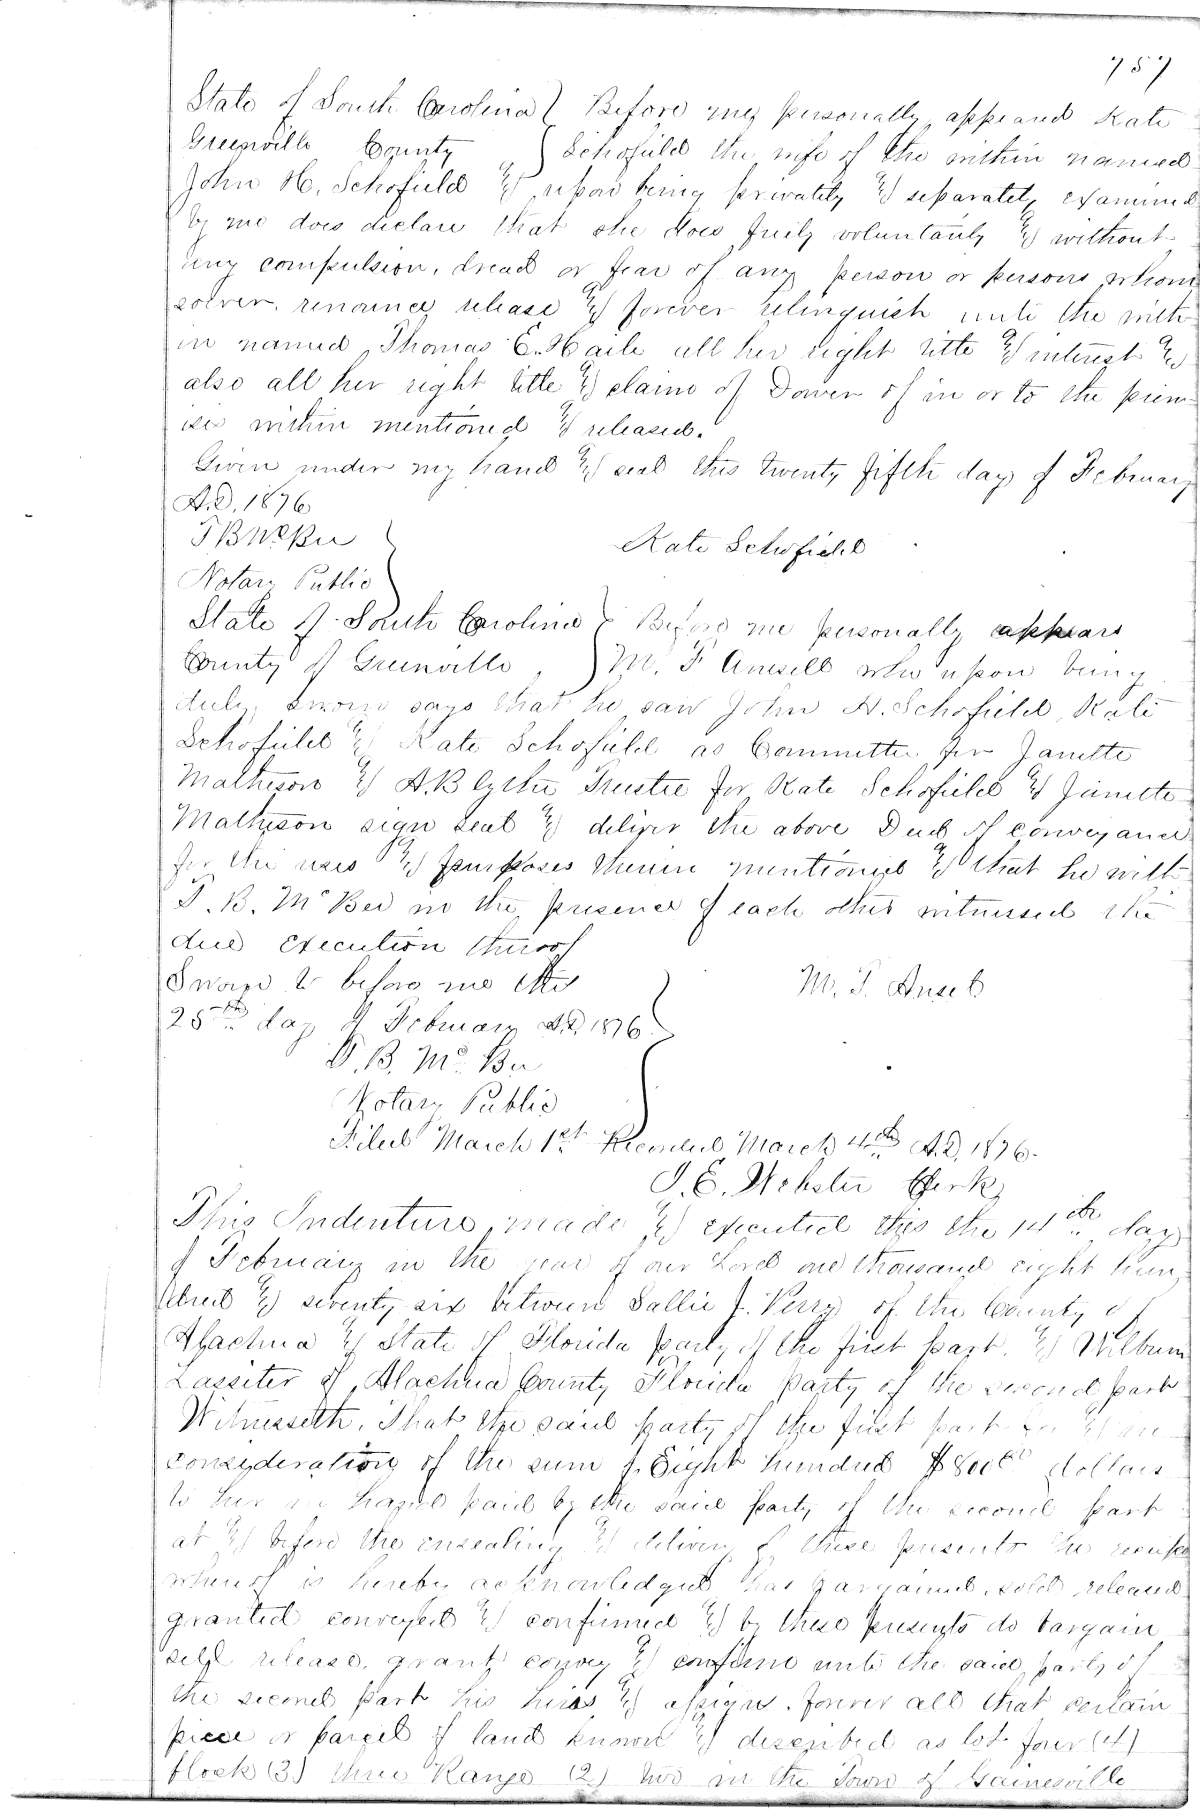 757
State of South Carolina } Before me personally appeared Kate
Greenville County } Schofield the wife of the within named
John H. Schofield & upon being privately & separately examined
by me does declare that she does freely voluntarily & without
any compulsion, dread or fear of any person or persons whom
soever, renounce release & forever relinquish unto the with
in named Thomas E. Haile all her right title & interest &
also all her right title & claim of Dower of in or to the prem-
ises within mentioned & released.
Given under my hand & seal this twenty fifth day of February
A.D. 1876
T B McBee Kate Schofield
Notary Public
State of South Carolina } Before me personally appears
County of Greenville } M. F Ansell who upon being
duly sworn says that he saw John H. Schofield, Kate
Schofield & Kate Schofield as Committee for Janette
Matheson & A. Blythe Trustee for Kate Schofield & Janette
Matheson sign seal & deliver the above Deed of conveyance
for the uses & purposes therein mentioned & that he with
T. B. McBee in the presence of each other witnessed the
due execution thereof
Sworn to before me this M. F. Ansel
25th day of February A.D. 1876
T. B. Mc Bee
Notary Public
Filed March 1st Recorded March 4th A.D. 1876.
J. E. Webster Clerk
This Indenture, made & executed this the 14th day
of February in the year of our Lord one thousand eight hun
dred & seventy six between Sallie J. Perry of the County of
Alachua & State of Florida party of the first part, & Wilburn
Lassiter of Alachua County Florida party of the second part
Witnesseth, That the said party of the first part for & in
consideration of the sum of Eight hundred $800 00 dollars
to her in hand paid by the said party of the second part
at & before the ensealing & delivery of these presents the receipt
whereof is hereby acknowledged has bargained, sold, released
granted conveyed & confirmed & by these presents do bargain
sell release, grant convey & confirm unto the said party of
the second part his heirs & assigns forever all that certain
piece or parcel of land known & described as lot four (4)
block (3) three Range (2) two in the Town of Gainesville